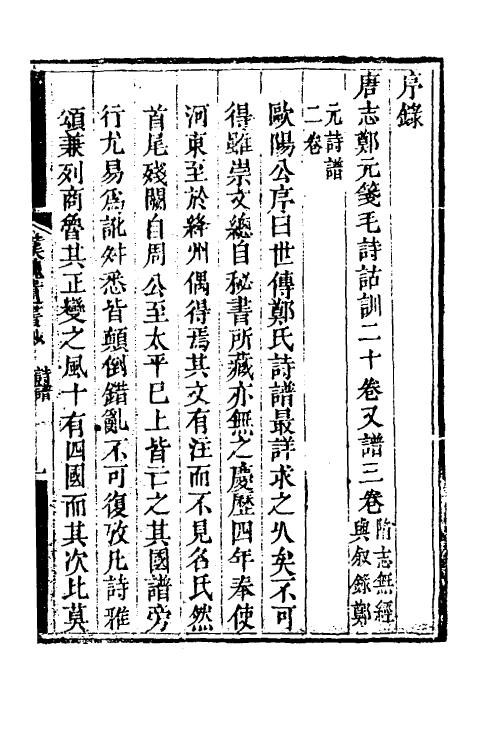 序錄
唐志鄭元箋毛詩詁訓二十卷又譜三卷隋志無經
與叙錄鄭
元詩譜
二卷
歐陽公序曰世傳鄭氏詩譜最詳求之久矣不可
得雖崇文總自秘書所藏亦無之慶歷四年奉使
河東至於絳州偶得焉其文有注而不見名氏然
首尾殘闕自周公至太平巳上皆亡之其國譜旁
行尤易爲訛舛悉皆顛倒錯亂不可復攷凡詩雅
頌兼列商魯其正變之風十有四國而其次比莫
詩譜